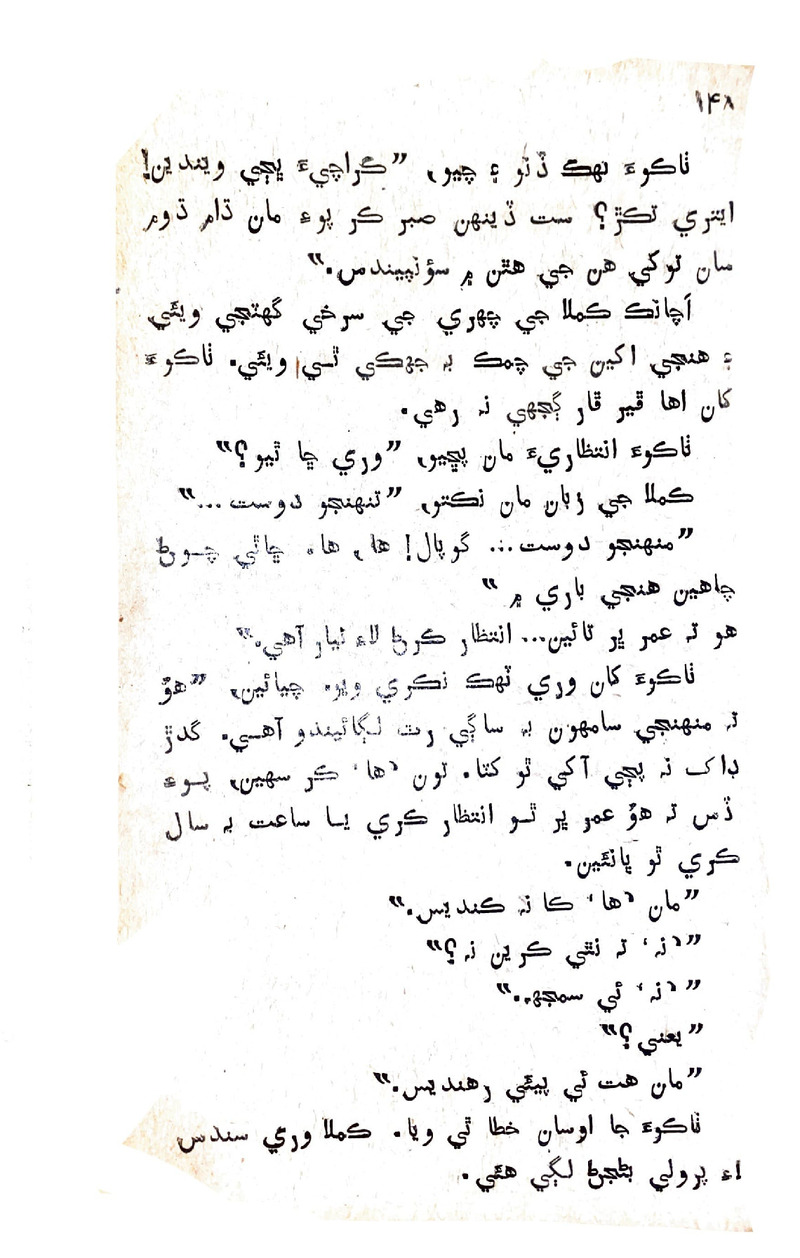 ۱۴۸
ٺاڪوءَ ٽهڪ ڏنو ۽ چيو، ”ڪراچيءَ ڀڄي ويندين!
ايتري تڪڙ؟ ست ڏينهن صبر ڪر پوءِ مان ڌام ڌوم
سان توکي هن جي هٿن ۾ سؤنپيندس.“
اَچانڪ ڪملا جي چهري جي سرخي گهٽجي ويئي
۽ هنجي اکين جي چمڪ به جهڪي ٿي ويئي. ٺاڪوءَ
کان اها ڦير ڦار ڳجهي نه رهي.
ٺاڪوءَ انتظاريءَ مان پڇيو، ”وري ڇا ٿيو؟“
ڪملا جي زبان مان نڪتو، ”تنهنجو دوست...“
”منهنجو دوست... گوپال! ها، ها. ڇاٿي چوڻ
چاهين هنجي باري ۾“
هو ته عمر ڀر تائين... انتظار ڪرڻ لاءِ تيار آهي.“
ٺاڪوءَ کان وري ٽهڪ نڪري ويو. چيائين، ”هوُ
ته منهنجي سامهون به ساڳي رٽ لڳائيندو آهي. گدڙ
ڊاک نه پڄي آکي ٿو کٽا. تون ’ها‘ ڪر سهين، پوءِ
ڏس ته هوُ عمر ڀر ٿو انتظار ڪري يا ساعت به سال
ڪري ٿو ڀانئين.
”مان ’ها‘ ڪا نه ڪنديس.“
”’نه‘ ته نٿي ڪرين نه؟“
”’نه‘ ئي سمجهه.“
”يعني؟“
”مان هت ئي پيئي رهنديس.“
ٺاڪوءَ جا اوسان خطا ٿي ويا. ڪملا وري سندس
لاءِ پرولي بڻجڻ لڳي هئي.